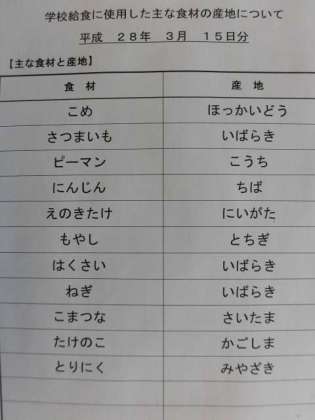 学校給食に使用した主な食材の産地について
平成 28年 3月 15日分
【主な食材と産地】
食 材 産 地
こめ ほっかいどう
さつまいも いばらき
ピーマン こうち
にんじん ちば
えのきたけ にいがた
もやし とちぎ
はくさい いばらき
ねぎ いばらき
こまつな さいたま
たけのこ かごしま
とりにく みやざき